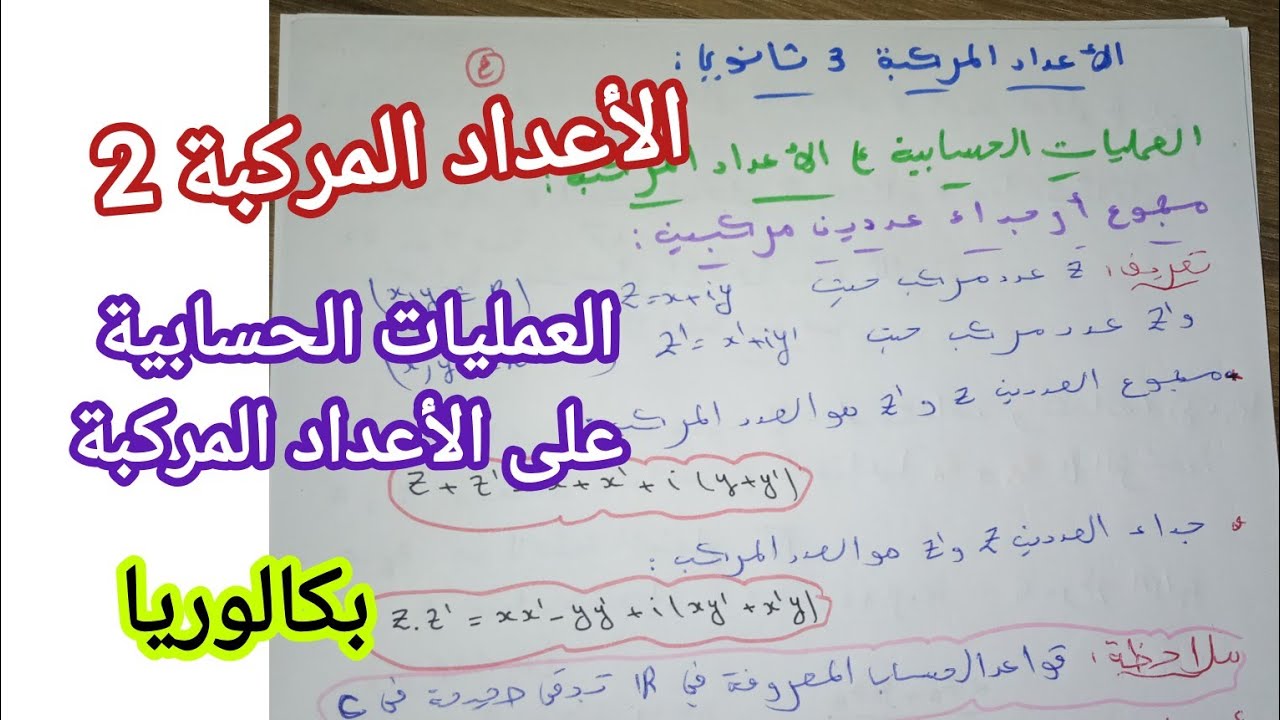 الأعداد المركبة 3 ثانوي:
ع
الأعداد المركبة 2
العمليات الحسابية ع الأعداد المركبة:
مجموع أو جداء عددين مركبين:
تعريف: z عدد مركب حيث z=x+iy
و z' عدد مركب حيث z'=x'+iy'
العمليات الحسابية
على الأعداد المركبة
مجموع العددين z و z' هو العدد المركب
z + z' = x + x' + i (y+y')
جداء العددين z و z' هو العدد المركب:
z.z' = xx' - yy' + i(xy' + x'y)
بكالوريا
ملاحظة: قواعد الحساب المعروفة في R تبقى صحيحة في C